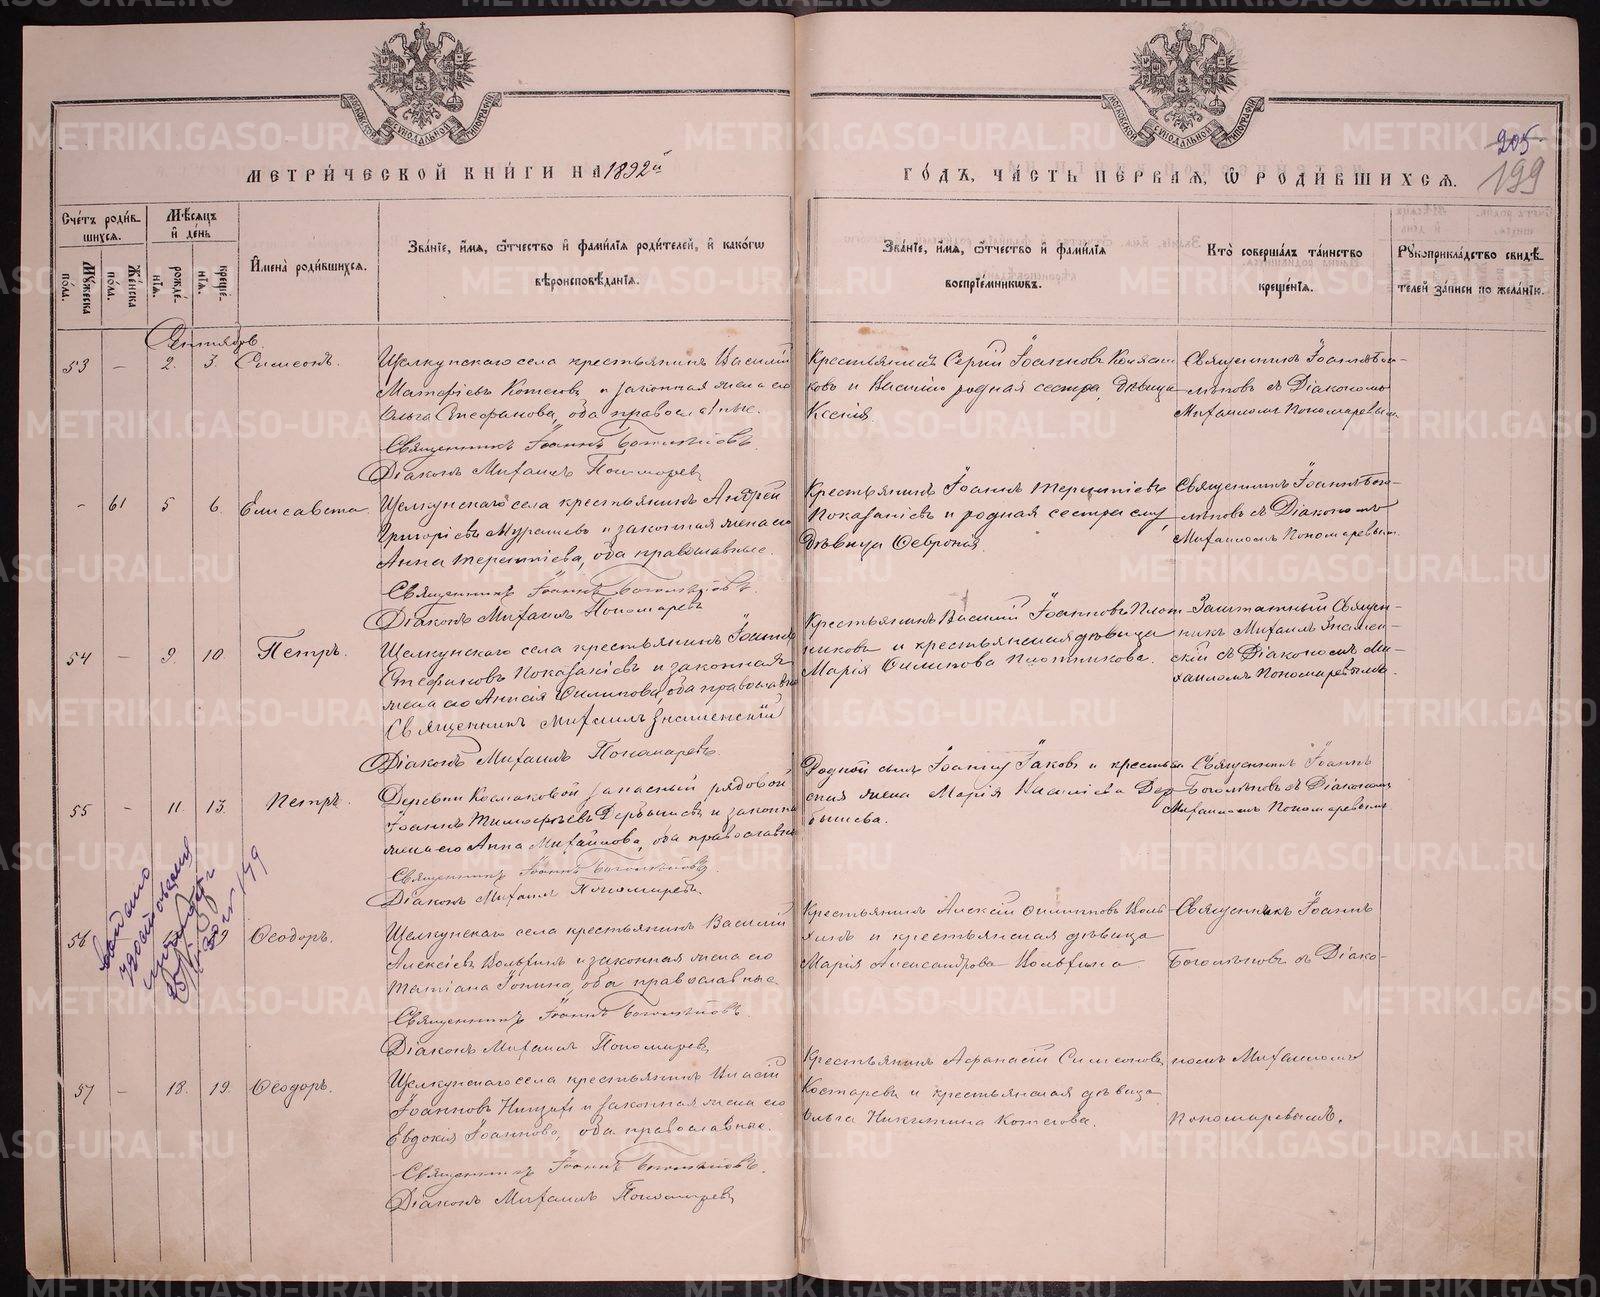 МЕТРИ́ЧЕСКОЙ КНИ́ГИ НА 1892й
ГО́ДЪ, ЧА́СТЬ ПЕ́РВАЯ, Ѡ РОДИ́ВШИХСѦ.
205
199
Сче́тъ роди́в-
шихся.
Му́жеска по́ла.
Же́нска по́ла.
Мѣ́сяцъ и҆ де́нь
рожде́-нїѧ.
креще́-нїѧ.
И҆мена̀ роди́вшихся.
Зва́нїе, и҆́мѧ, ѻ҆́тчество и҆ фами́лїѧ роди́телей, и҆ како́гѡ
вѣроисповѣ́данїѧ.
Зва́нїе, и҆́мѧ, ѻ҆́тчество и҆ фами́лїѧ
воспрїе́мникѡвъ.
Кто̀ соверша́лъ та́инство
креще́нїѧ.
Рꙋкоприкла́дство свидѣ́-
телей за́писи по жела́нїю.
Сентябрь.
53 – 2. 3. Симеонъ.
Щелкунскаго села крестьянинъ Василій
Матфіевъ Котеговъ и законная жена его
Ольга Стефанова, оба православные.
Священникъ Іоаннъ Боголѣповъ.
Діаконъ Михаилъ Пономаревъ
Крестьянинъ Сергій Іоанновъ
ковъ и Василію родная сестра, дѣвица
Ксенія.
Священникъ Іоаннъ Бого-
лѣповъ съ Діакономъ
Михаиломъ Пономаревымъ.
- 61 5 6. Елисавета
Щелкунскаго села крестьянинъ Андрей
Григоріевъ и законная жена его
Анна Терентіева, оба православные.
Священникъ Іоаннъ Боголѣповъ.
Діаконъ Михаилъ Пономаревъ
Крестьянинъ Іоаннъ Терентіевъ
Показаніевъ и родная сестра ему,
дѣвица Ѳевронія.
Священникъ Іоаннъ Бого-
лѣповъ съ Діакономъ
Михаиломъ Пономаревымъ.
54 – 9. 10. Петръ.
Щелкунскаго села крестьянинъ Іоаннъ
Стефановъ Показаніевъ и законная
жена его Анисія Филипова, оба православные
Священникъ Михаилъ Знаменскій
Діаконъ Михаилъ Пономаревъ
Крестьянинъ Василій Іоанновъ Плот-
никовъ и крестьянская дѣвица
Марія Филипова Плотникова.
Заштатный Священ-
никъ Михаилъ Знамен-
скій съ Діакономъ Ми-
хаиломъ Пономаревымъ.
55 – 11. 13. Петръ.
Деревни Космаковой запасный рядовой
Іоаннъ Тимофѣевъ Дербышевъ и законная
жена его Анна Михайлова, оба православные
Священникъ Іоаннъ Боголѣповъ.
Діаконъ Михаилъ Пономаревъ.
Родной сынъ Іоанну Іаковъ и крестьян-
ская жена Марія Василіева Дер-
бышева.
Священникъ Іоаннъ
Боголѣповъ съ Діакономъ
Михаиломъ Пономаревымъ.
Выдано
удостовѣреніе
56 Ѳеодоръ.
Щелкунскаго села крестьянинъ Василій
Алексіевъ Вольхинъ и законная жена его
Татіана Іонина, оба православные
Священникъ Іоаннъ Боголѣповъ.
Діаконъ Михаилъ Пономаревъ
Крестьянинъ Алексій Филипповъ Воль-
хинъ и крестьянская дѣвица
Марія Александрова Вольхина.
Священникъ Іоаннъ
Боголѣповъ съ Діако-
57 – 18. 19. Ѳеодоръ.
Щелкунскаго села крестьянинъ
Іоанновъ и законная жена его
Евдокія Іоаннова, оба православные.
Священникъ Іоаннъ Боголѣповъ.
Діаконъ Михаилъ Пономаревъ
Крестьянинъ Аѳанасій Симеоновъ
Костаревъ и крестьянская дѣвица
Ольга Никитина Котегова.
номъ Михаиломъ
Пономаревымъ.
METRIKI.GASO-URAL.RU